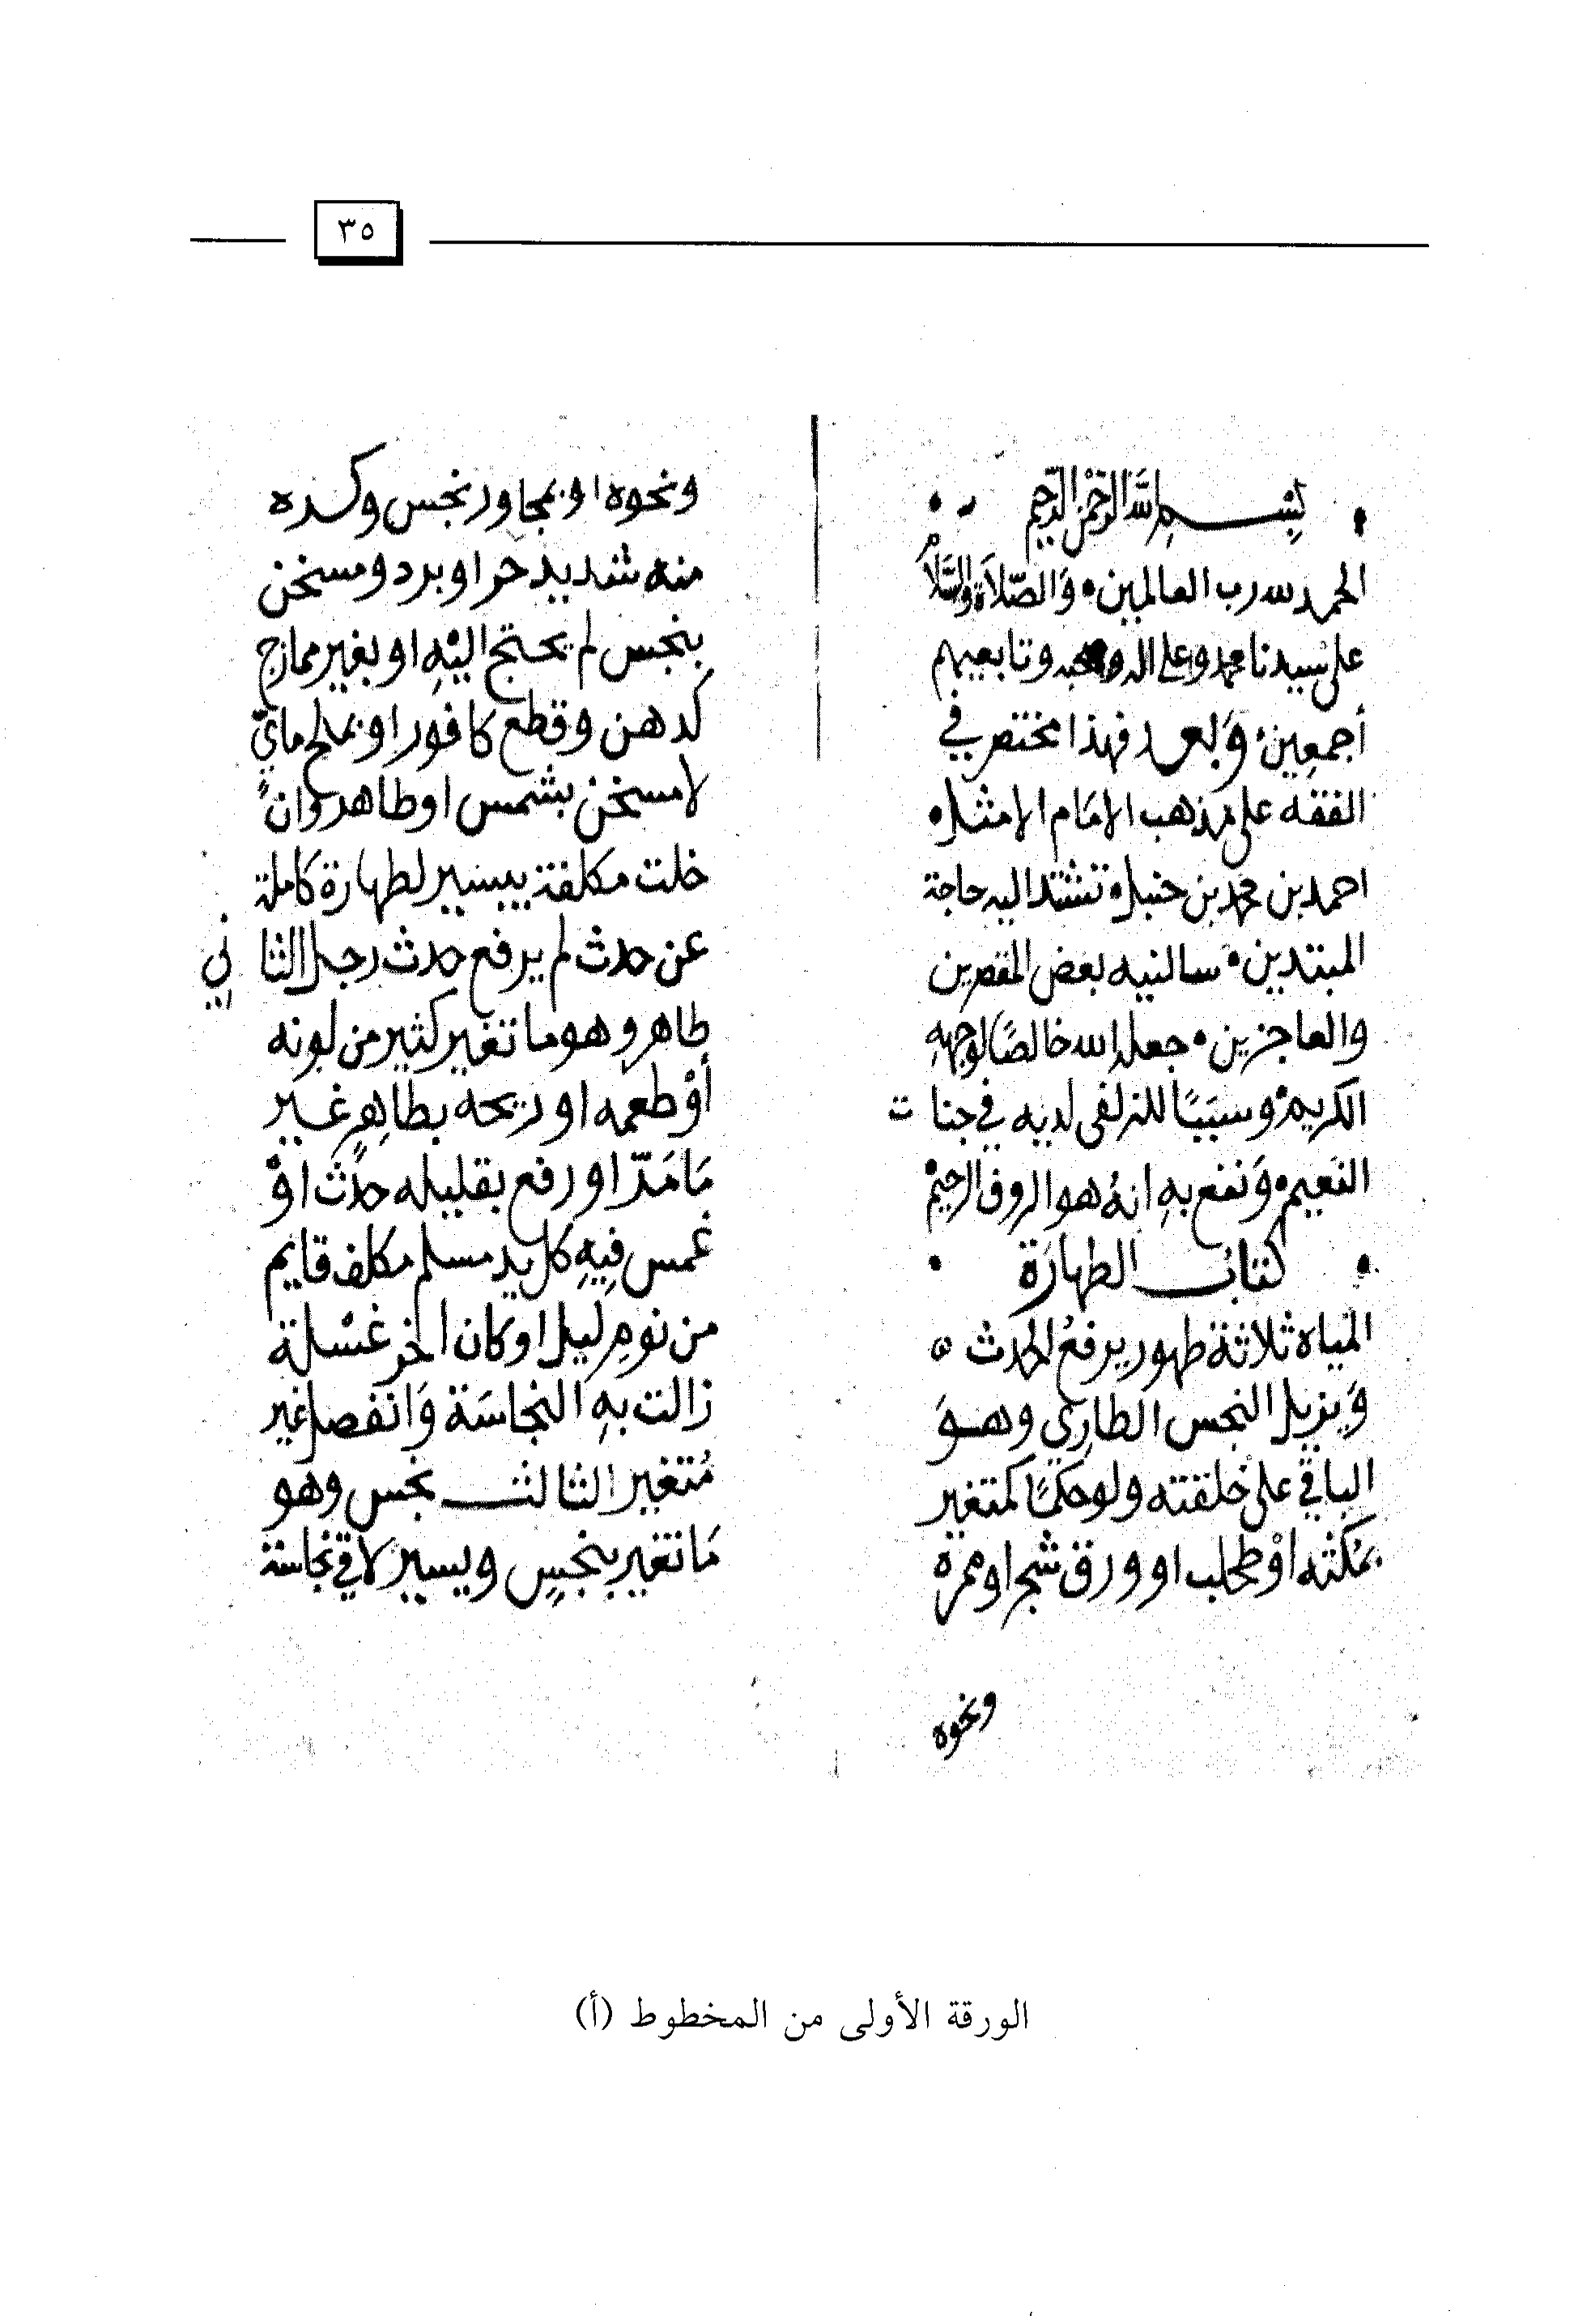 ٣٥
بسم الله الرحمن الرحيم
الحمد لله رب العالمين • وَالصّلاَة والسَّلاَم
على سيدنا محمد وعلى اله وصحبه وتابعيهم
أجمعِين وَبعد فهذا مختصر في
الفقه على مذهب الامَام الامثل •
احمد بن محمد بن حنبل • تشتد اليه حاجة
المبتدين • سالنيه بعض المقصرين
والعاجزين • جعله الله خالصًا لوجههِ
الكريم • وسببًا للزلفى لديه في جنات
النعيم • وَنفع بهِ انهُ هو الروف الرحيم
• كتابُ الطهارَة •
المياه ثلاثة طهور يرفعُ الحدث
وَيزيل النجس الطاري وهو
الباقي على خلقته ولو حكمًا كمتغير
بمُكثه اوْ طحلب او ورق شجر او ممره
ونحوه
ونحوه او بمجاور نجس وكده
منه شديد حر او برد ومسخن
بِنجس لم يحتج اليْهِ او بغير ممازج
كدهن وقطع كافور او بملح مايّ
لا مسخن بشمس او طاهر وان
خلت مكلفة بيسير لطهارة كاملة
عن حدث لم يرفع حدث رجل الثاني
طاهر وهو ما تغير كثير من لونه
أوْ طعمه او ريحه بطاهِرٍ غير
مَا مَدّ او رفع بقليله حدَث اوْ
غمس فِيهِ كل يد مسلم مكلف قايم
من نومِ ليل او كان اخر غسْلة
زالت بهِ النجاسَة وَانفصل غير
مُتغير الثالث نجس وهو
مَا تغير بنجسٍ ويسير لاقى نجاسة
الورقة الأولى من المخطوط (أ)